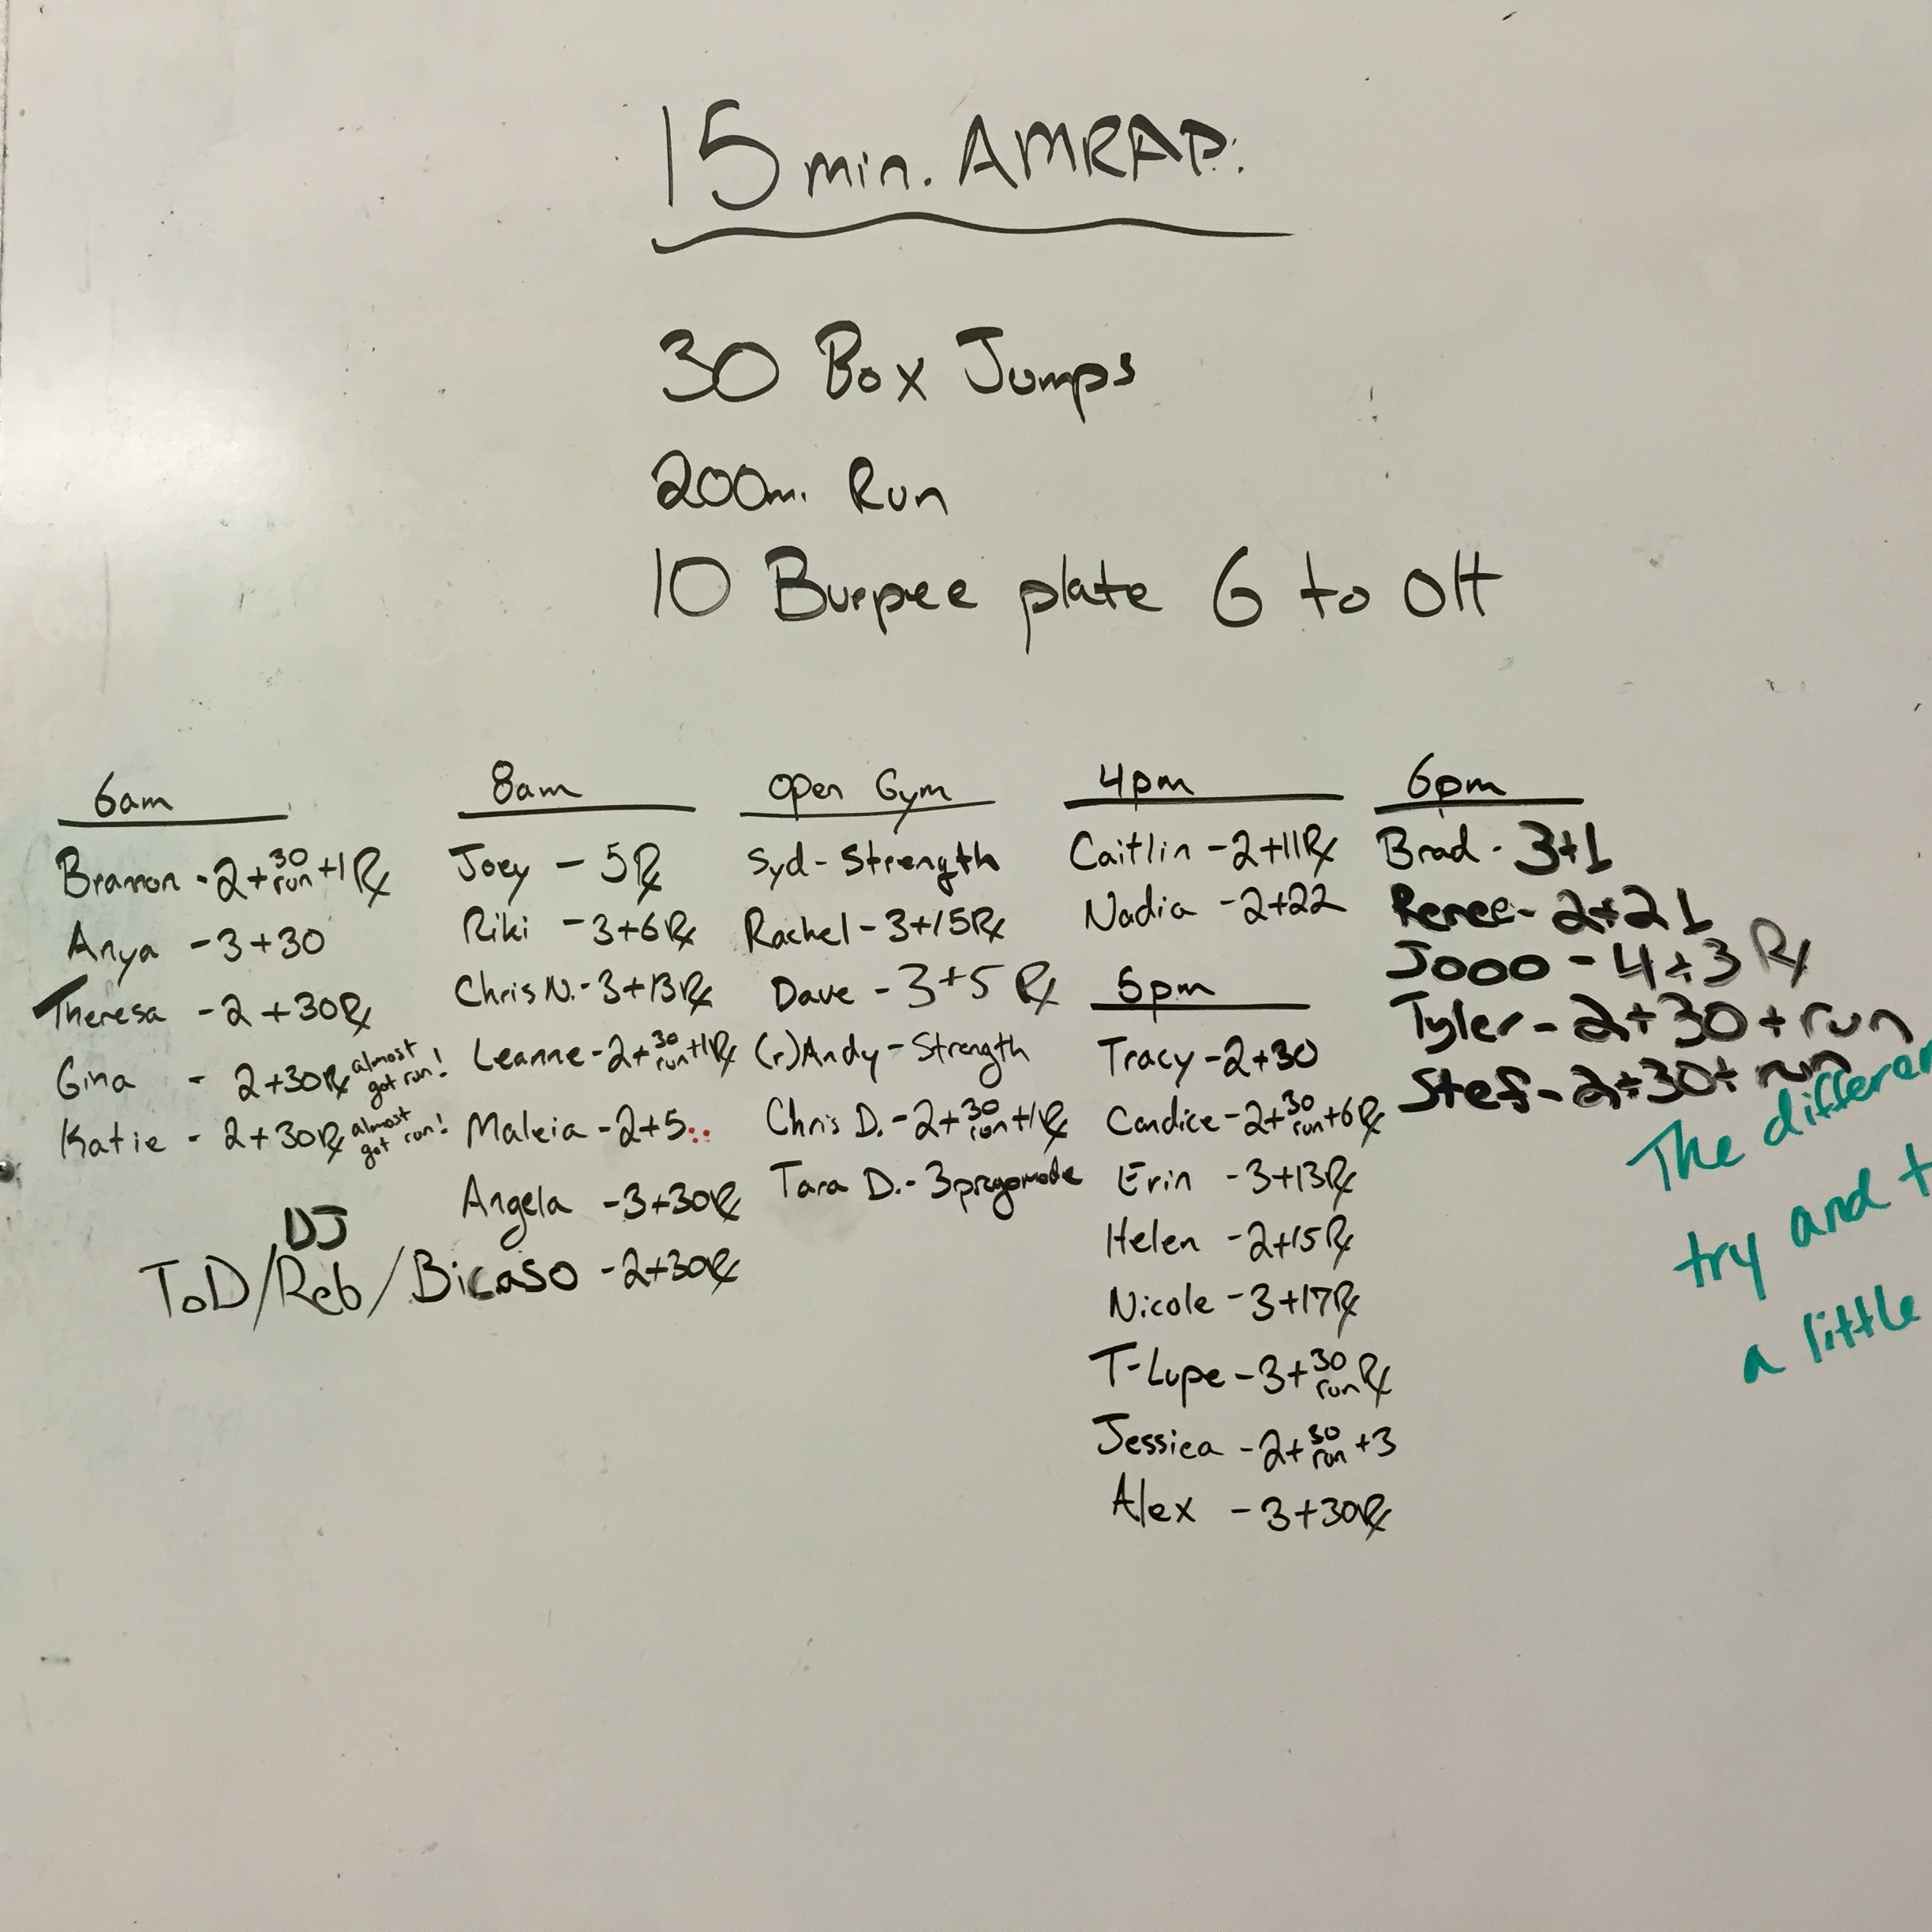 15 min. AMRAP:
30 Box Jumps
200m. Run
10 Burpee plate G to OH
6am
Brannon - 2+30 run +1 Rx
Anya - 3+30
Theresa - 2+30Rx
Gina - 2+30Rx almost got run!
Katie - 2+30Rx almost got run!
8am
Joey - 5Rx
Riki - 3+6Rx
Chris N. - 3+13Rx
Leanne - 2+30 run+1Rx
Maleia - 2+5
Angela - 3+30Rx
DJ
ToD/Reb/Bicaso - 2+30Rx
Open Gym
Syd - Strength
Rachel - 3+15Rx
Dave - 3+5 Rx
(r)Andy - Strength
Chris D. - 2+30 run+1Rx
Tara D. - 3
4pm
Caitlin - 2+11Rx
Nadia - 2+22
5pm
Tracy - 2+30
Candice - 2+30 run+6Rx
Erin - 3+13Rx
Helen - 2+15Rx
Nicole - 3+17Rx
T-Lupe - 3+30 run Rx
Jessica - 2+30 run +3
Alex - 3+30Rx
6pm
Brad - 3+1
Renee - 2+21
Jooo - 4+3 Rx
Tyler - 2+30+run
Stef - 2+30+run
The differen
try and t
a little